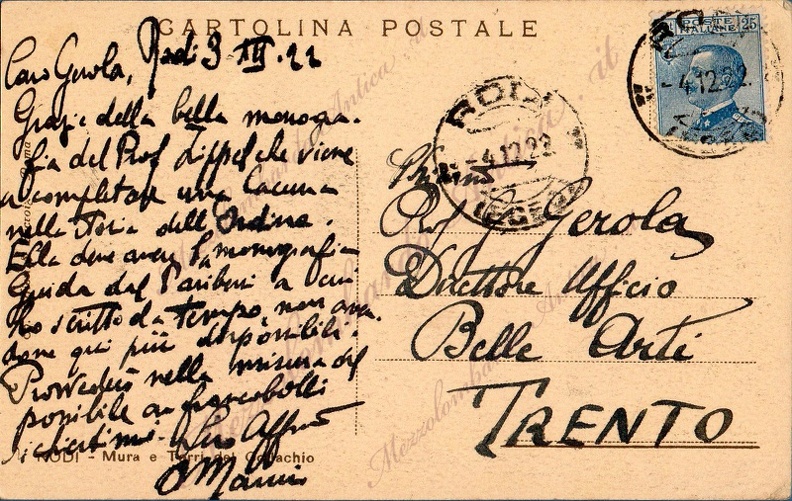 CARTOLINA POSTALE
Rodi 3 XII. 22
Caro Gerola,
Grazie della bella monogra-
fia del Prof Zippel che viene
a completare una lacuna
nella storia dell'Ordine.
Ella deve avere la monografia
Guida del Paribeni a cui
ho scritto da tempo, non aven-
done qui più disponibili.
Provvederò nella misura del
possibile ai francobolli
richiestimi.
Suo Aff
A Maiuri
RODI - Mura e Torri del Collachio
POSTE ITALIANE 25
RODI
-4.12.22
EGEO
RODI
-4.12.22
EGEO
Prof G. Gerola
Direttore Ufficio
Belle Arti
TRENTO